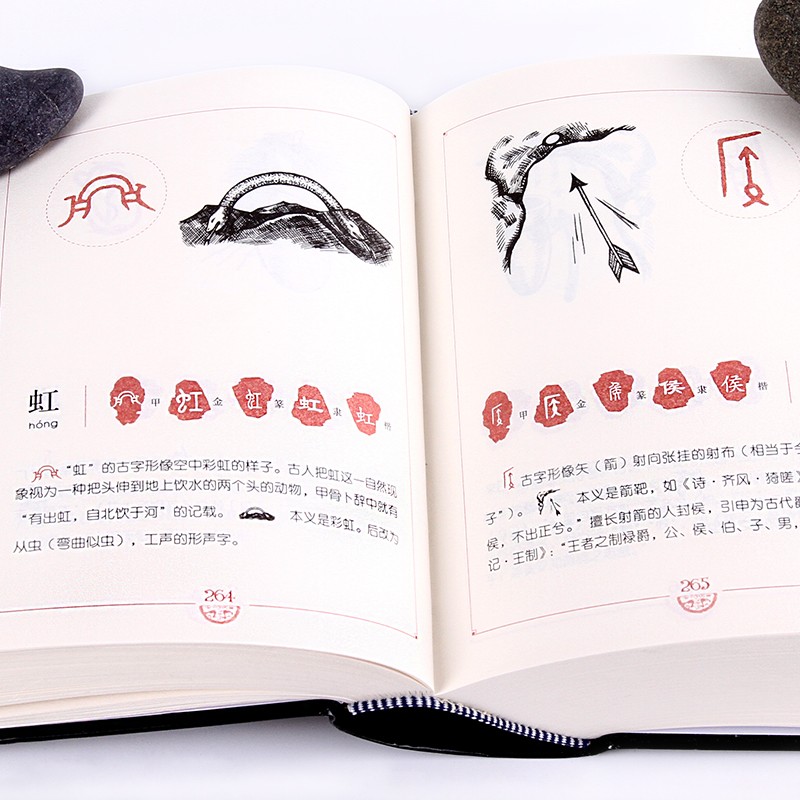 虹
hóng
甲 金 篆 隶 楷
“虹”的古字形像空中彩虹的样子。古人把虹这一自然现
象视为一种把头伸到地上饮水的两个头的动物，甲骨卜辞中就有
“有出虹，自北饮于河”的记载。 本义是彩虹。后改为
从虫（弯曲似虫），工声的形声字。
264
甲 金 篆 隶 楷
古字形像矢（箭）射向张挂的射布（相当于今
子”）。 本义是箭靶，如《诗·齐风·猗嗟》
侯，不出正兮。”擅长射箭的人封侯，引申为古代爵
记·王制》：“王者之制禄爵，公、侯、伯、子、男，
265